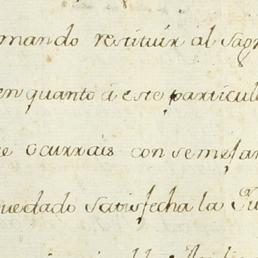 mando restituir al sagr
en quanto à este particul
e ocurrais con semejan
uedado satisfecha la